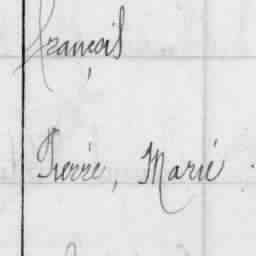 françois
Pierre, Marie.